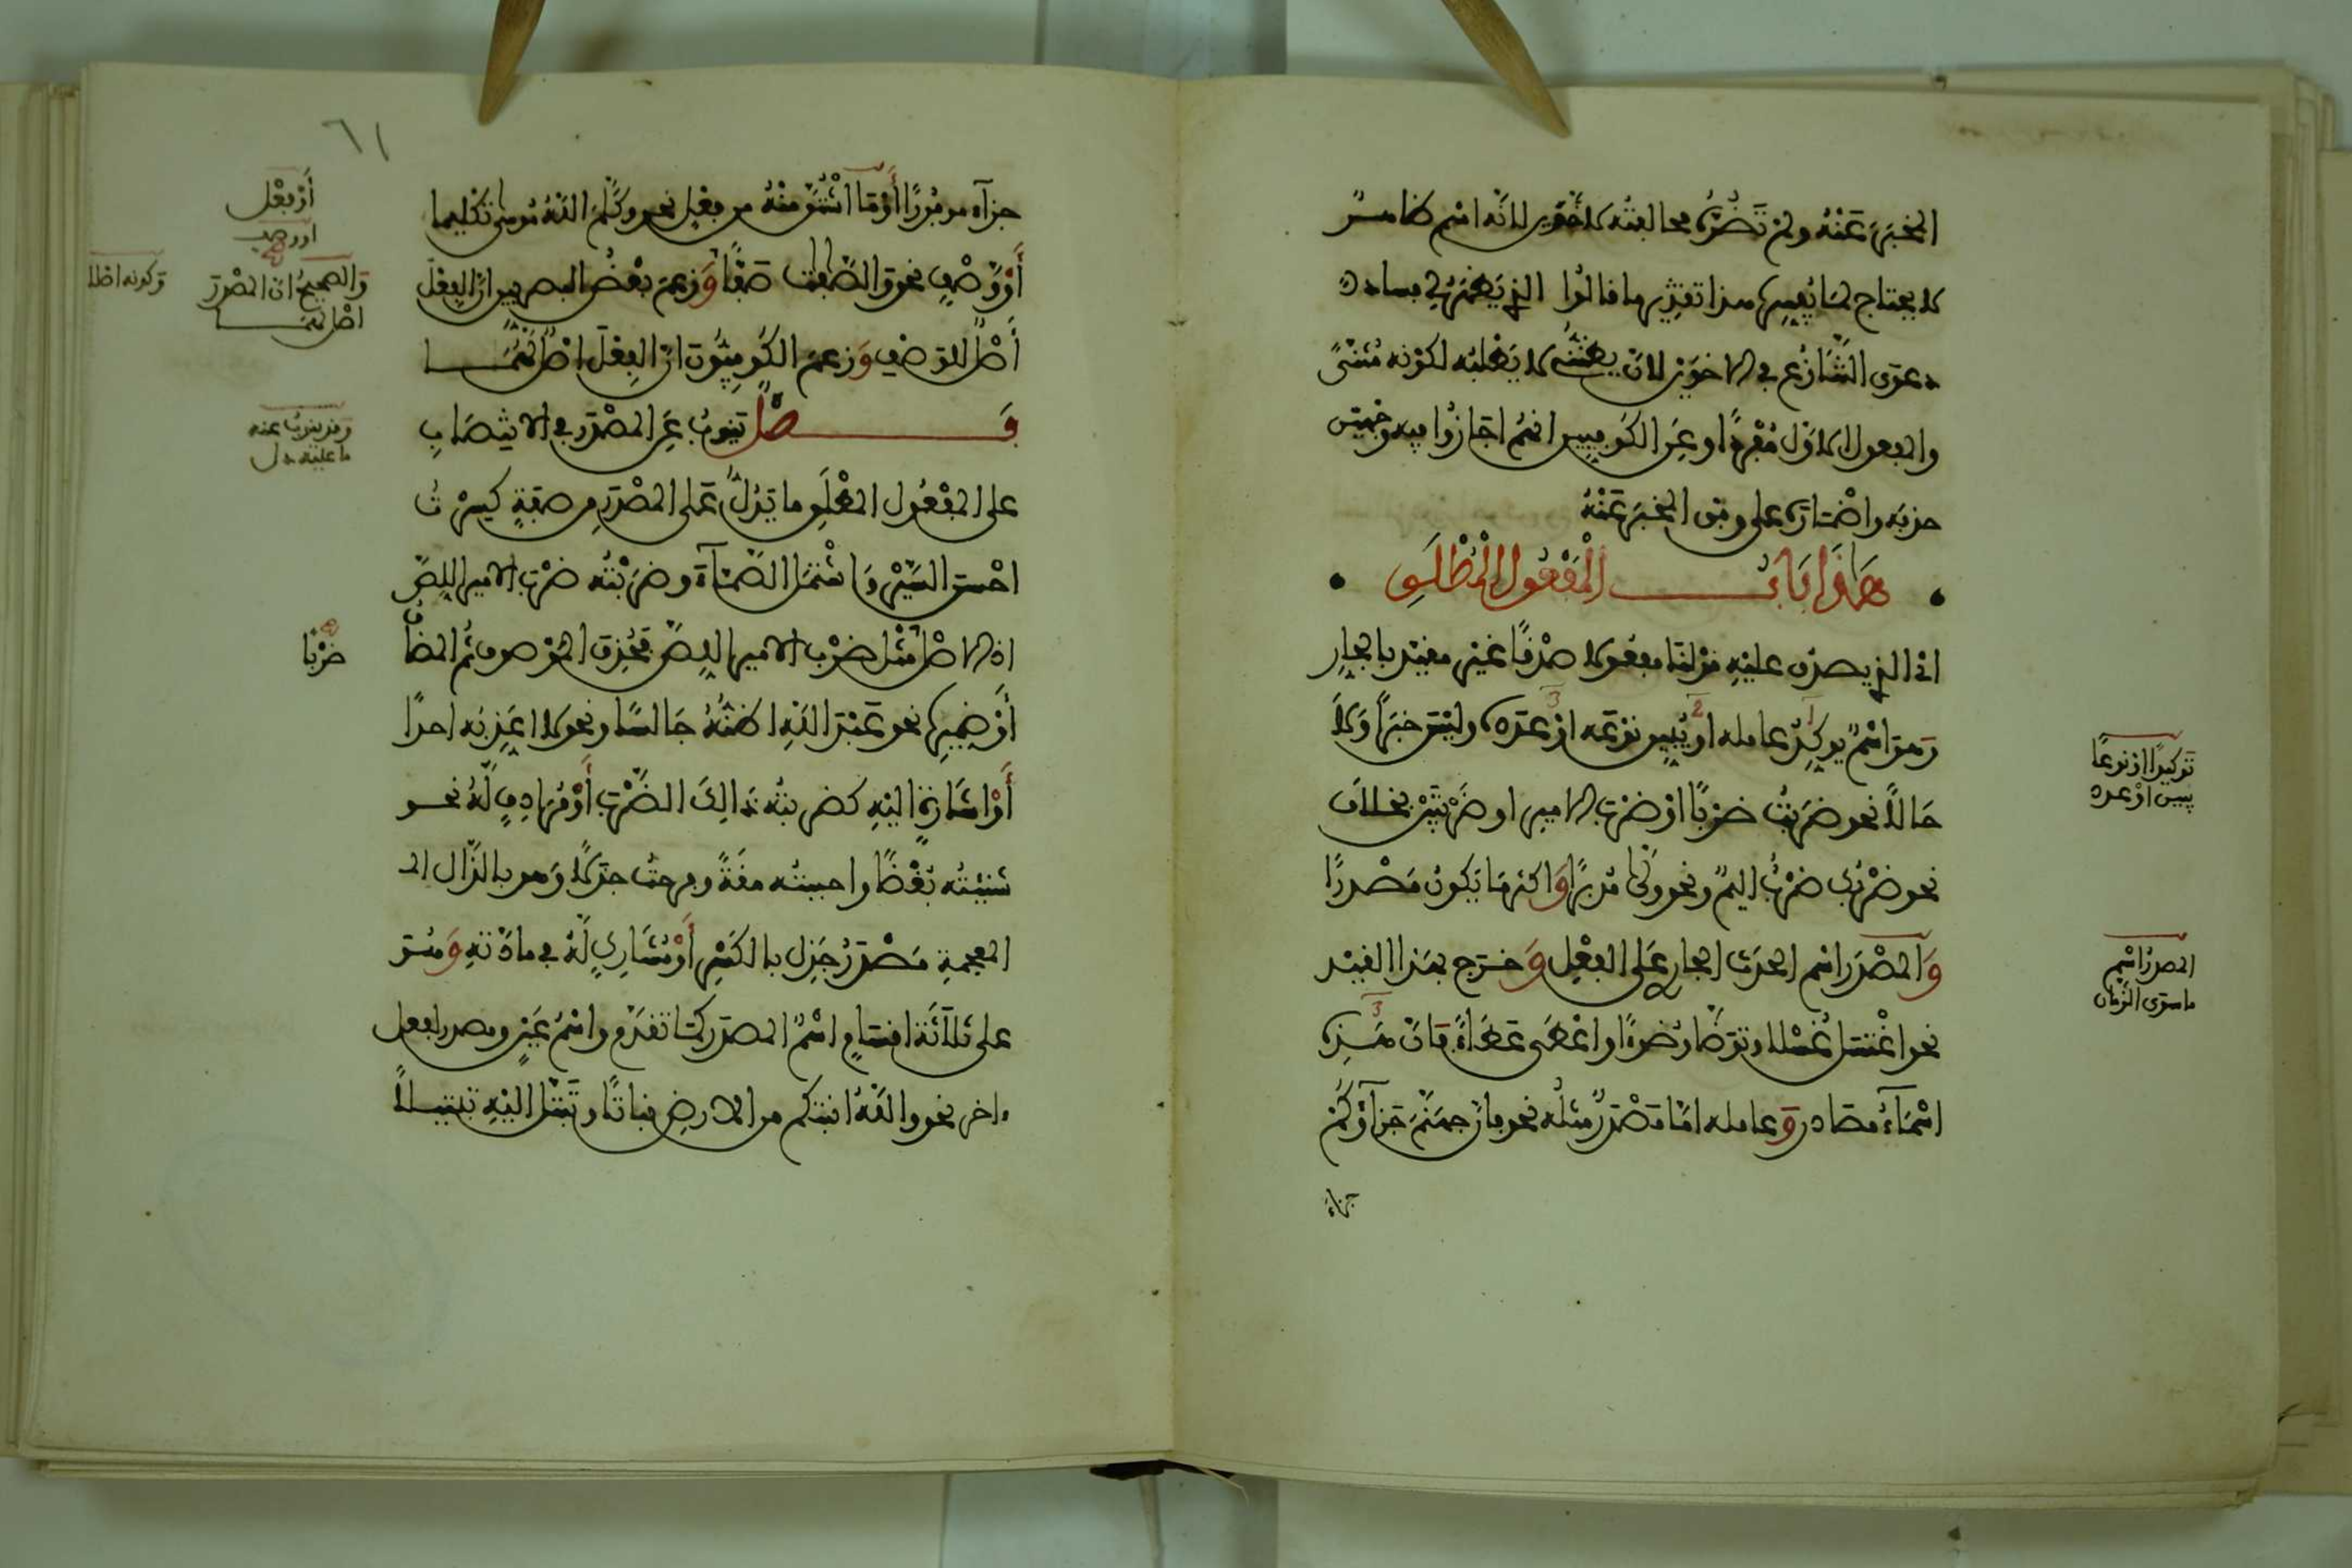 المخبر عنه ولم تضره مخالفته للاخوين لانه اسم ظاهر
لا يحتاج لما يفسره هذا تقرير ما قالوا الذي يظهر لي فساد
دعوى التنازع في الاخوين لان يظن لا يطلبه لكونه مثنى
والمفعول الاول مفردا وعن الكوفيين انهم اجازوا فيه وجهين
حذفه واضماره على وفق المخبر عنه
هاذا باب المفعول المطلق
اي الذي يصدق عليه قولنا مفعولا صدقا غير مقيد بالجار
وهو اسم يوكد عامله او يبين نوعه او عدده وليس خبرا ولا
حالا نحو ضربت ضربا او ضرب الامير او ضربتين بخلاف
نحو ضربك ضرب اليم ونحو ولى مدبرا واكثر ما يكون مصدرا
والمصدر اسم الحدث الجار على الفعل وخرج بهذا القيد
نحو اغتسل غسلا وتوضا وضوءا واعطى عطاء فان هذه
اسماء مصادر وعامله اما مصدر مثله نحو فان جهنم جزاؤكم
جزاء
توكيدا او نوعا
يبين او عدد
المصدر اسم
ما سوى الزمان
٦١
جزاء موفورا او ما اشتق منه من فعل نحو وكلم الله موسى تكليما
او وصف نحو والصافات صفا وزعم بعض البصريين ان الفعل
اصل للوصف وزعم الكوفيون ان الفعل اصل لهما
فصل ينوب عن المصدر في الانتصاب
على المفعول المطلق ما يدل على المصدر من صفة كسرت
احسن السير واشتمل الصماء وضربته ضرب الامير اللص
اذ الاصل مثل ضرب الامير اللص فحذف الموصوف ثم المضاف
او ضميره نحو عبد الله اظنه جالسا ونحو لا اعذبه احدا
او اشارة اليه كضربته ذالك الضرب او مرادف له نحو
شنئته بغضا واحببته مقة وفرحت جذلا وهو بالذال ال
المعجمة مصدر جذل بالكسر او مشارك له في مادته وهو
على ثلاثة اقسام اسم المصدر كما تقدم واسم عين ومصدر لفعل
ءاخر نحو والله انبتكم من الارض نباتا وتبتل اليه تبتيلا
او بفعل
او وصف
والصحيح ان المصدر
اصل لهما
وكونه اصلا
وقد ينوب عنه
ما عليه دل
ضربا